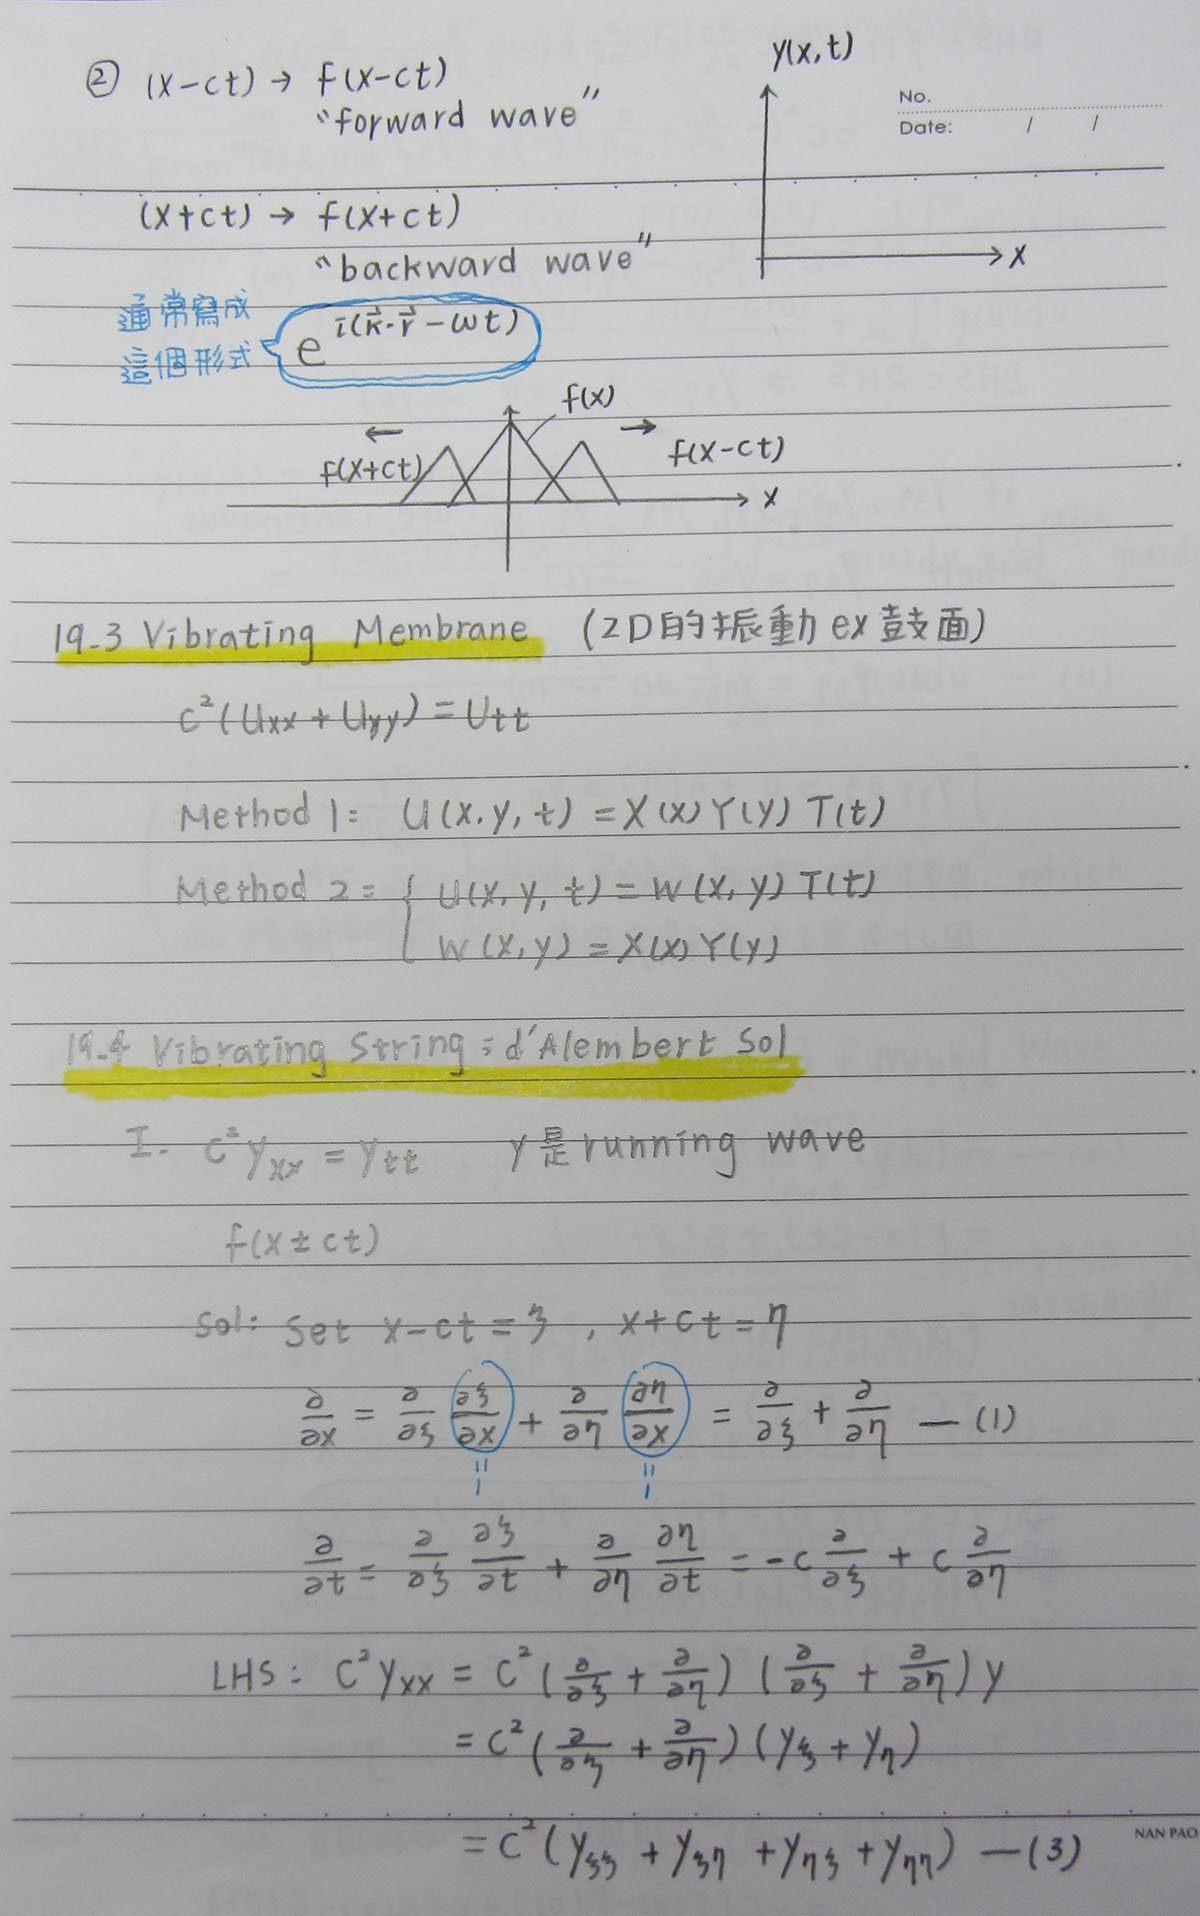 ② (x-ct) → f(x-ct)
"forward wave"
y(x,t)
x
No.
Date: / /
(x+ct) → f(x+ct)
"backward wave"
通常寫成
這個形式
e^{i(k⃗·r⃗-ωt)}
f(x)
f(x+ct)
f(x-ct)
x
19-3 Vibrating Membrane (2D的振動ex鼓面)
c²(Uxx + Uyy) = Utt
Method 1: U(x.y,t) = X(x)Y(y)T(t)
Method 2: { U(x,y,t) = W(x,y)T(t)
W(x,y) = X(x)Y(y)
19-4 Vibrating String: d'Alembert Sol
I. c²yxx = ytt y是running wave
f(x±ct)
Sol: Set x-ct = ξ, x+ct = η
∂/∂x = ∂/∂ξ ∂ξ/∂x + ∂/∂η ∂η/∂x = ∂/∂ξ + ∂/∂η —(1)
=1 =1
∂/∂t = ∂/∂ξ ∂ξ/∂t + ∂/∂η ∂η/∂t = -c ∂/∂ξ + c ∂/∂η
LHS: c²yxx = c²(∂/∂ξ + ∂/∂η)(∂/∂ξ + ∂/∂η)y
= c²(∂/∂ξ + ∂/∂η)(yξ + yη)
= c²(yξξ + yξη + yηξ + yηη) —(3)
NAN PAO